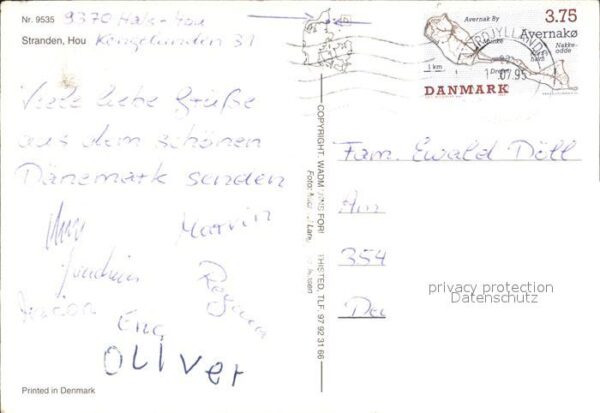 Nr. 9535
9370 Hals-Hou
Stranden, Hou
Kongelunden 31
Viele liebe Grüße
aus dem schönen
Dänemark senden
Marvin
Joachim
Regina
OLIVER
Printed in Denmark
COPYRIGHT: WADM
THISTED, TLF. 97 92 31 66
Foto:
3.75
Avernak By
Avernakø
1 km
DANMARK
NORDJYLLAND
07.95
Fam. Ewald Döll
Am
354
privacy protection
Datenschutz